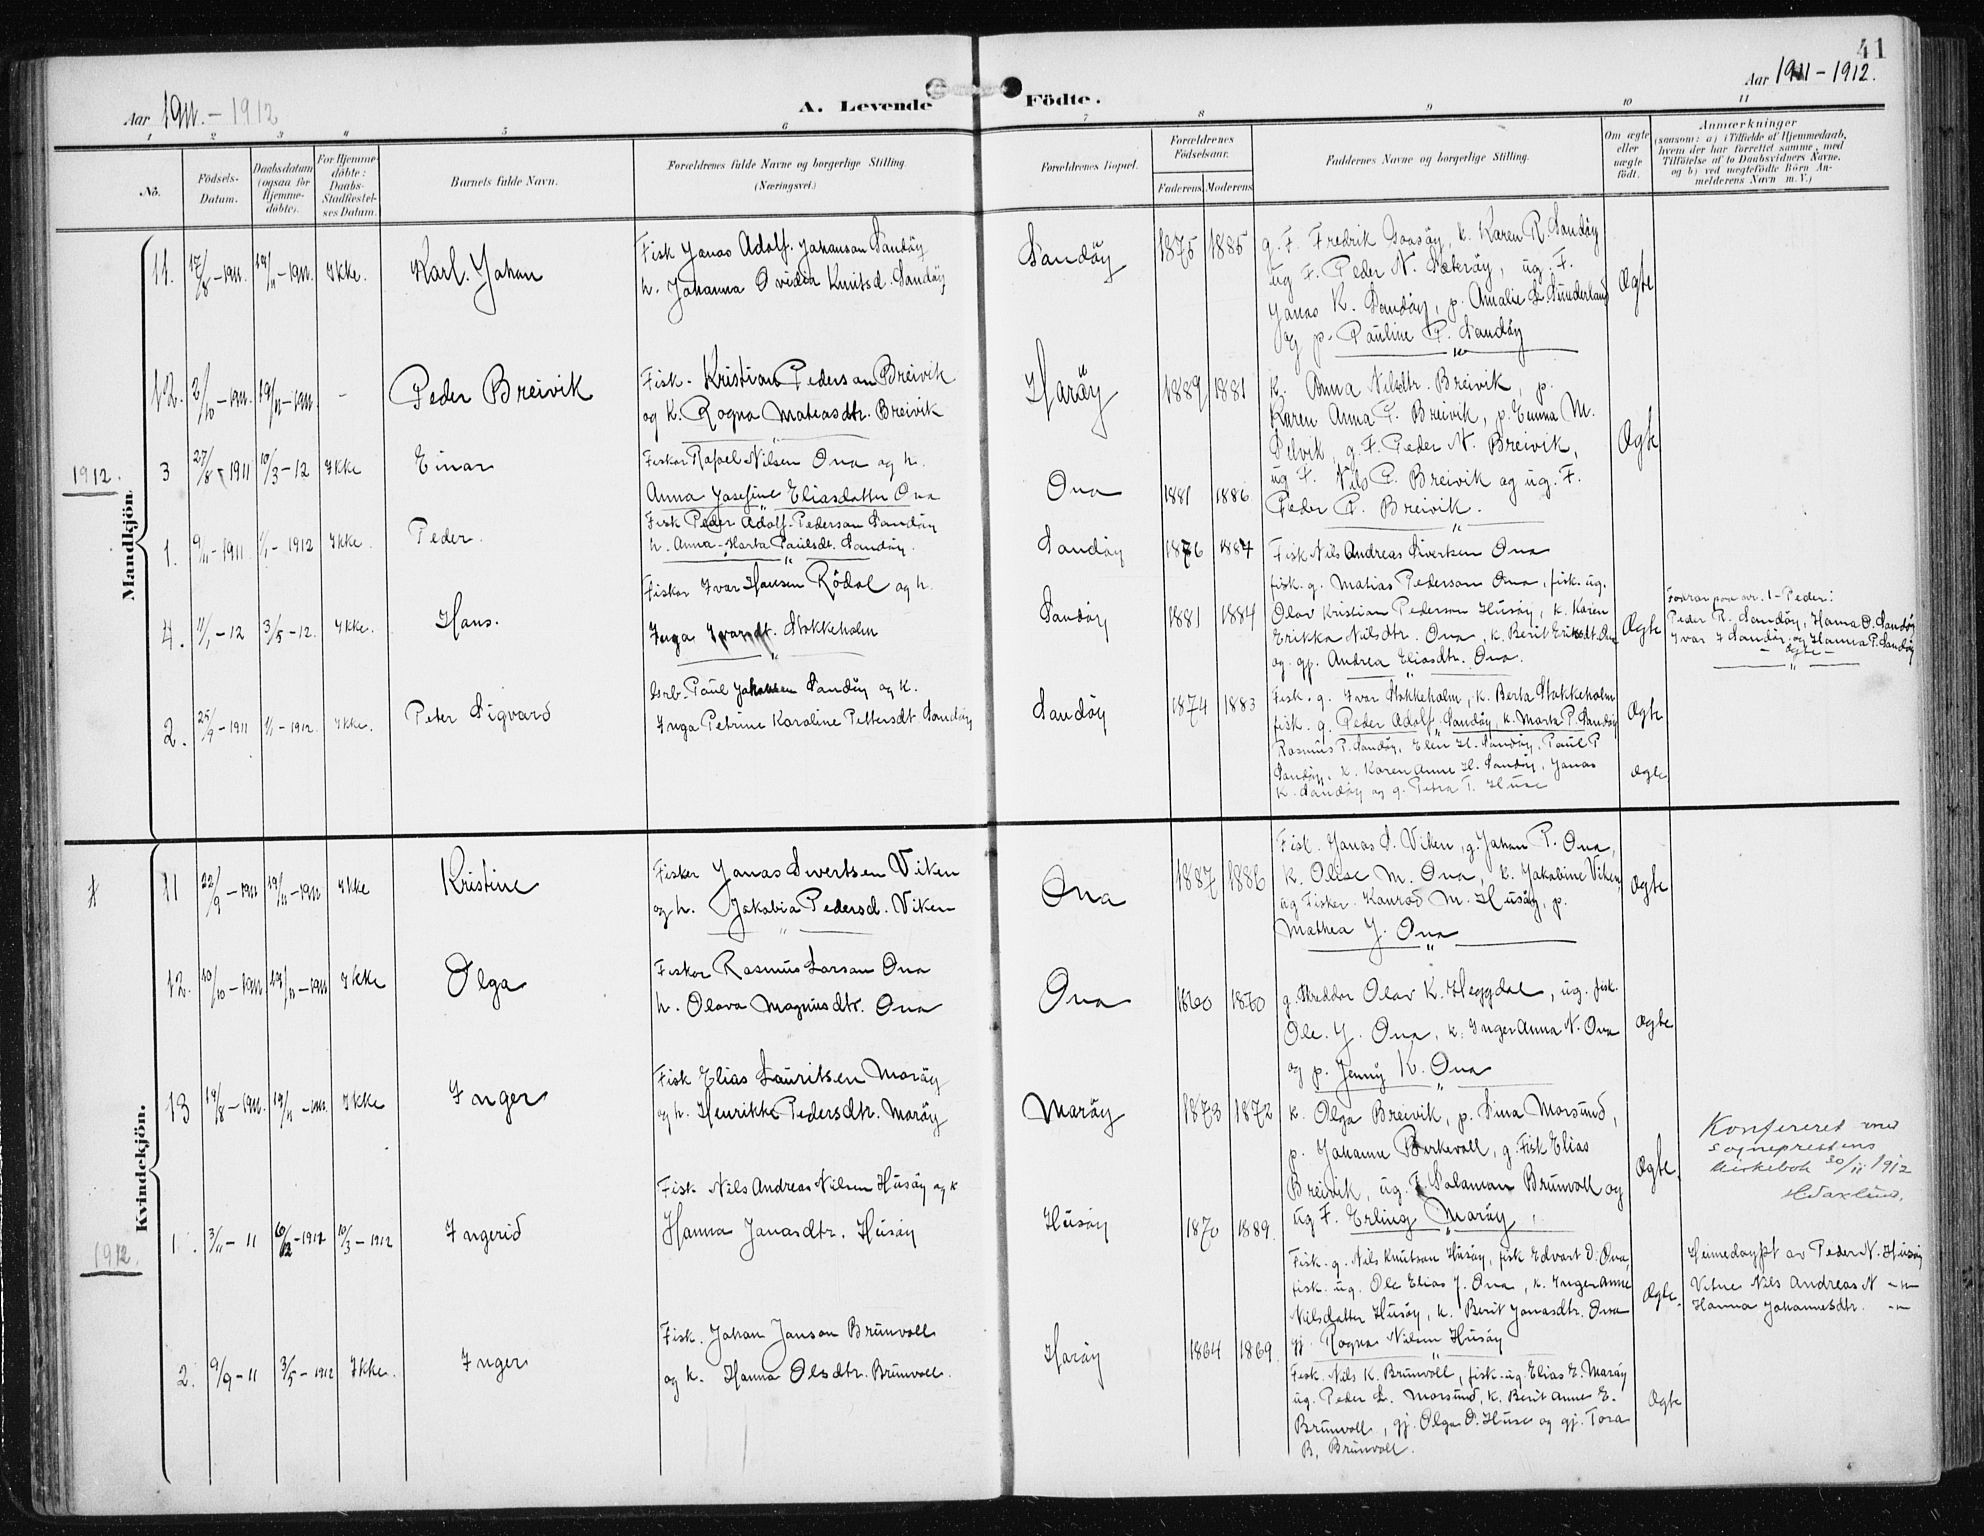 41
Aar 1911. - 1912
A. Levende Födte.
Aar 1911 - 1912.
1 2 3 4 5 6 7 8 9 10 11
No.
Födsels-Datum.
Daabsdatum (ogsaa for Hjemme-döbte).
For Hjemme-döbte: Daabs-Stadfæstel-ses Datum.
Barnets fulde Navn.
Forældrenes fulde Navne og borgerlige Stilling.
(Næringsvei.)
Forældrenes Bopæl.
Forældrenes Födselsaar.
Faderens Moderens
Faddernes Navne og borgerlige Stilling.
Om ægte eller uægte födt.
Anmærkninger
(saasom: a) i Tilfælde af Hjemmedaab,
hvem der har forrettet samme, med
Tilföielse af to Daabsvidners Navne.
og b) ved uægtefödte Börn An-
melderens Navn m. V.)
Mandkjön.
11. 17/8 - 1911. 19/11 - 1911. Ikke. Karl Johan
Fisk Jonas Adolf Johanson Sandöy
h. Johanna Ovidia Knutsd. Sandöy
Sandöy 1875 1885
g. F. Fredrik Goasöy, k. Karen R. Sandöy
ug F. Peder N. Sæteröy, ug. F.
Jonas K. Sandöy, p. Amalie L Sunderland
og p. Pauline P. Sandöy
Ægte
12. 2/10 - 1911. 19/11 - 1911. - Peder Breivik
Fisk. Kristian Pederson Breivik
og k. Rogna Mateasdtr. Breivik
Haröy 1889 1881
k. Anna Nilsdtr. Breivik, p.
Karen Anna P. Breivik, p. Emma M.
Selvik, g. F. Peder N. Breivik,
ug F. Nils P. Breivik og ug. F.
Peder P. Breivik.
Ægte
1912.
3 27/8 - 1911 10/3 - 12 Ikke Einar
Fisker Rafael Nilsen Ona og h.
Anna Josefine Eliasdatter Ona
Ona 1881 1886
1. 9/11 - 1911 1/1 - 1912 Ikke. Peder.
Fisk Peder Adolf Pederson Sandöy
h. Anna Marta Paulsdt. Sandöy.
Sandöy 1876 1884
Fisk Nils Andreas Sivertsen Ona
fisk. g. Matias Pederson Ona, fisk. ug.
Olav Kristian Pederson Husöy, k. Karen
Erikka Nilsdtr. Ona, k. Berit Eriksdt. Ona
og gp. Andrea Eliasdtr. Ona.
Ægte
Fodrar paa nr. 1 - Peder:
Peder R. Sandöy, Hanna O. Sandöy
Ivar I Sandöy og Hanna P. Sandöy
- ægte -
4. 7/1 - 12 3/5 - 12. Ikke. Hans.
Fisker Ivar Hansen Rödal og h.
Inga Ivarsdt. Stokkeholm
Sandöy 1881 1884
Fisk. g. Ivar Stokkeholm, k. Berta Stokkeholm
fisk. g. Peder Adolf Sandöy, k. Marta P. Sandöy
Ægte
2. 25/9 - 1911 1/1 - 1912. Ikke. Peter Sigvard
Grb. Paul Jakobsen Sandöy og k.
Inga Petrine Karoline Pettersdt Sandöy
Sandöy 1874 1883
Rasmus P. Sandöy, Elen H. Sandöy, Paul P
Sandöy, k. Karen Anne H. Sandöy, Jonas
K. Sandöy og g. Petra T. Huse
Ægte
Kvindekjön.
11 22/9 - 1911 19/11 - 1911 Ikke Kristine
Fisker Jonas Sivertsen Viken
og h. Jakobia Pedersd. Viken
Ona 1887 1886
Fisk. Jonas S. Viken, g. Johan P. Ona,
k. Oline M. Ona, k. Jakobine Viken,
ug Fisker Konrad M. Husöy, p.
Mathea J. Ona
Ægte
12. 10/10 - 1911 19/11 - 1911 Ikke Olga
Fisker Rasmus Larsen Ona
h. Olava Magnusdtr. Ona
Ona 1860 1870
g. Skredder Olav K. Heggdal, ug. fisk.
Ole J. Ona, k. Inger Anna N. Ona
og p. Jenny K. Ona
Ægte
13 19/8 - 1911. 19/11 - 1911. Ikke Inger
Fisk Elias Lauritsen Maröy
og h. Henrikke Pedersdtr. Maröy
Maröy 1873 1872
k. Olga Breivik, p. Sina Morsund,
p. Johanne Berkevoll, g. Fisk Elias
Breivik, ug. F. Salamon Brunvoll og
ug F. Erling Maröy
Ægte
Konfereret med
sogneprestens
kirkebok 30/11 1912
1912.
1. 3/11 - 11 10/12 - 1912 10/3 - 1912 Ingerid
Fisk. Nils Andreas Nilsen Husöy og k
Hanna Jonasdtr. Husöy
Husöy 1870 1889.
Fisk. g. Nils Knutson Husöy, fisk Edvart O. Ona,
fisk. ug. Ole Elias J. Ona, k. Inger Anne
Nilsdatter Husöy, k. Berit Jonasdtr. Ona
gj. Ragna Nilsen Husöy
Ægte.
Heimedöypt av Peder N. Husöy
Vitne Nils Andreas N -"-
Hanna Johannesdtr. -"-
2. 9/9 - 11 3/5 - 1912 Ikke. Inger
Fisk. Johan Janson Brunvoll
og k. Hanna Olsdtr. Brunvoll.
Haröy 1864 1869.
Fisk. Nils K. Brunvoll, fisk. ug. Elias E. Maröy
ug. Peder L. Morsund, k. Berit Anne E.
Brunvoll, gj. Olga O. Huse og gj. Tora
B. Brunvoll.
Ægte